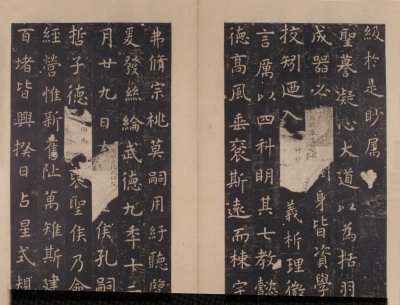 級於是眇属
聖謩凝心大道以為括羽
成器必身皆資學
校矧迺入義析理微
言厲以四科明其七教懿
德高風垂裒斯遠而棟宇
弗脩宗祧莫嗣用紆聽覽
爰發絲綸武德九年十二
月廿九日侯孔嗣
哲子德裒聖侯乃命
經營惟新舊阯萬雉斯建
百堵皆興揆日占星式規